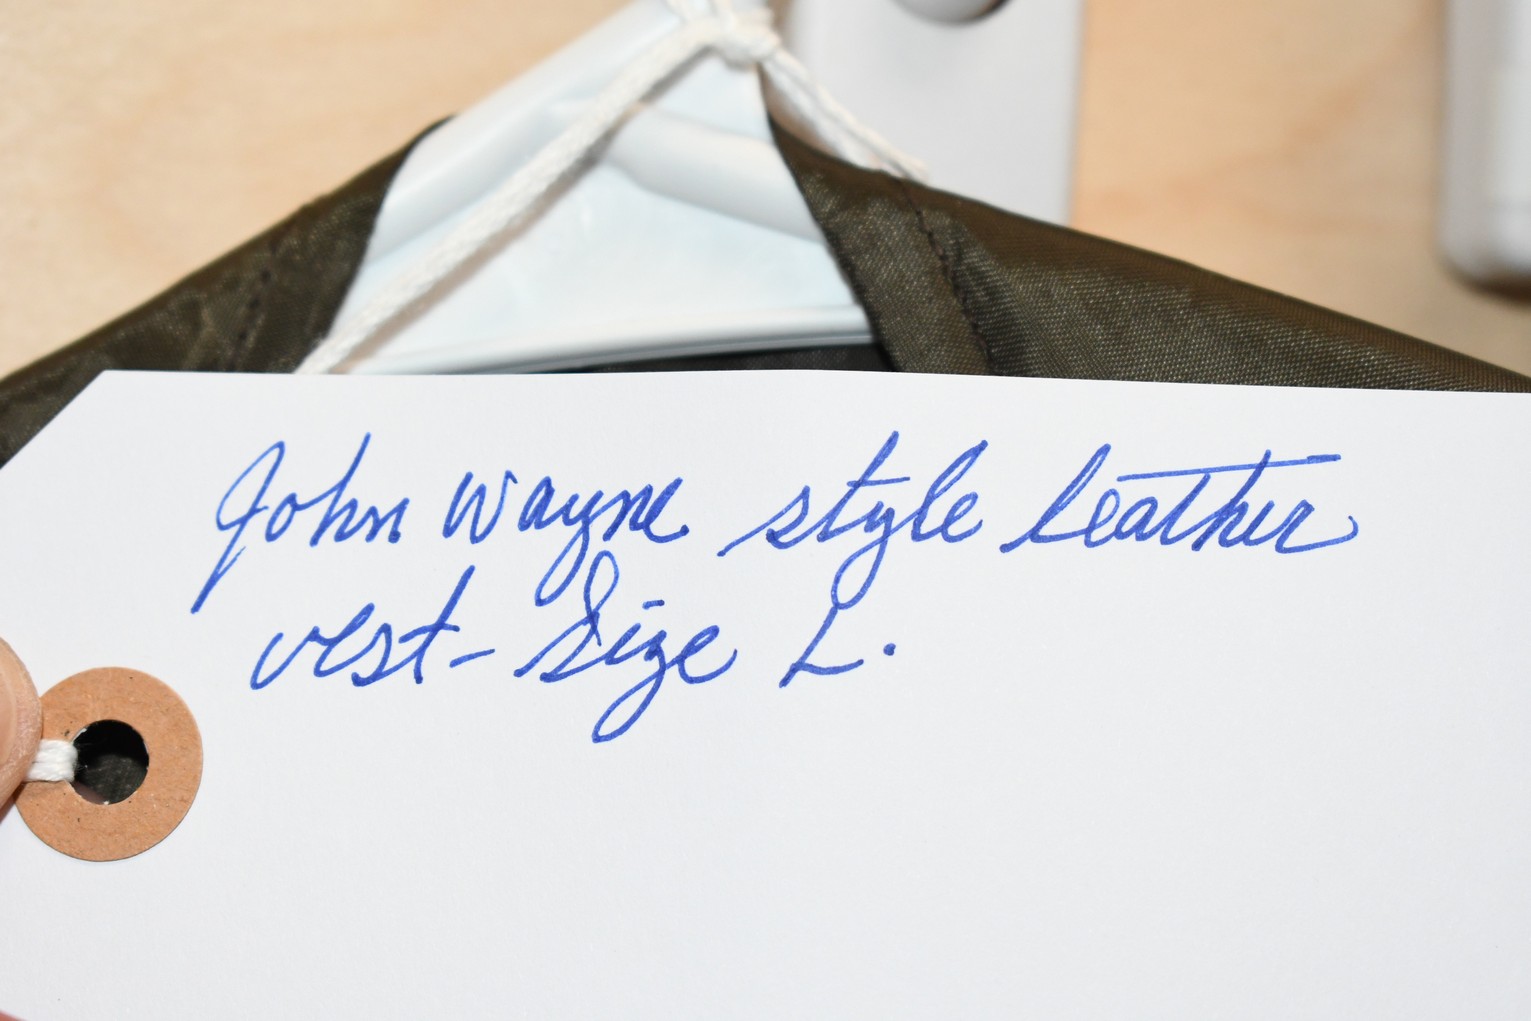 John Wayne style leather
vest - Size L.